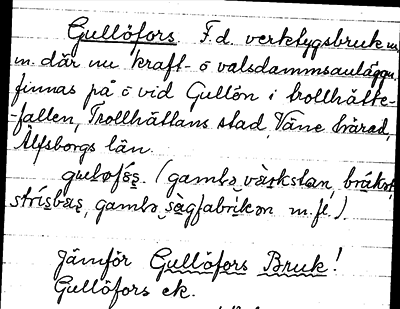 Gullöfors. F.d. verktygsbruk
m. där nu kraft- o valsdammsanläggn.
finnas på o vid Gullön i trollhätte-
-fallen, Trollhättans stad, Väne härad,
Älfsborgs län.
(gamlə värkstan,
gamlə sågfabrikən m.fl.)
Jämför Gullöfors Bruk!
Gullöfors ek.